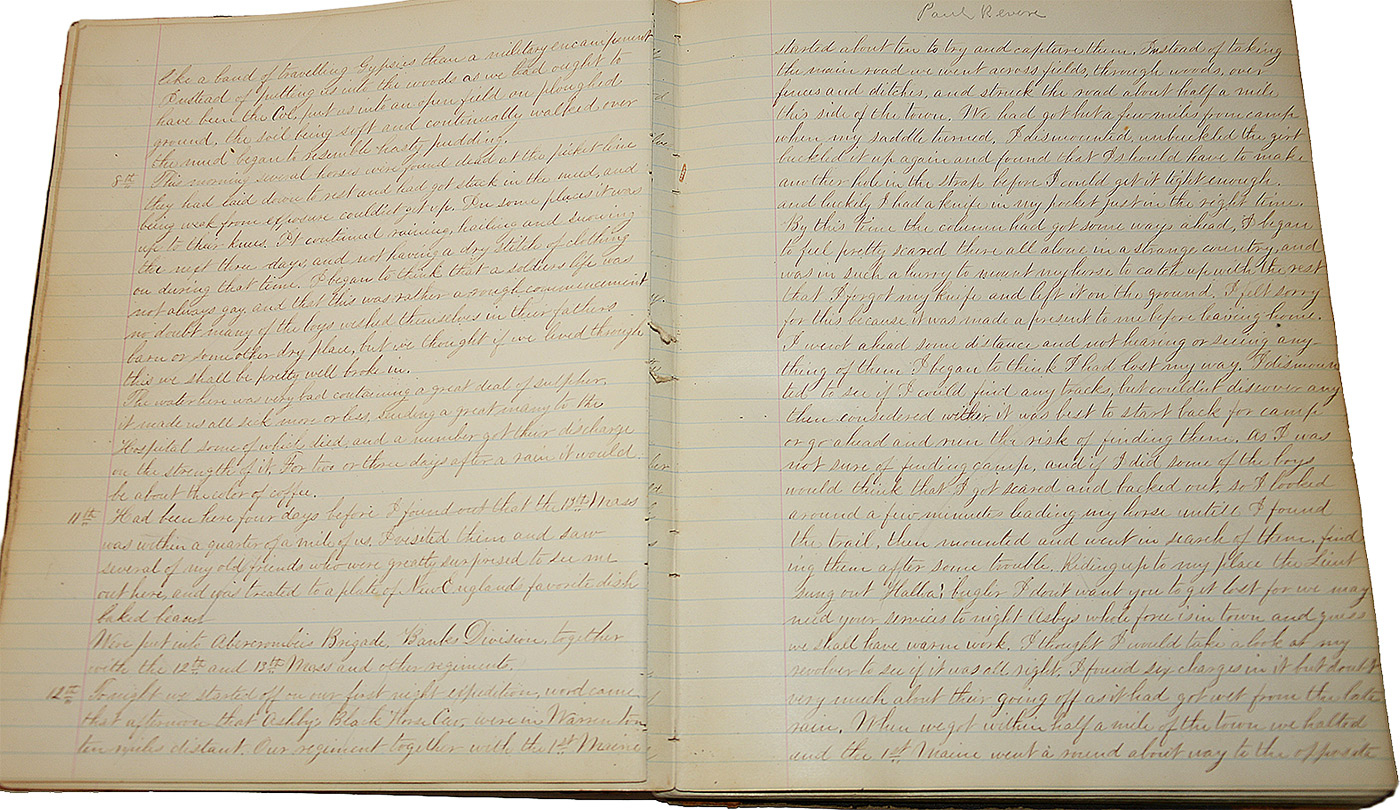 like a band of travelling Gypsies than a military encampment
Instead of putting us into the woods as we had ought to
have been the Col, put us into an open field on ploughed
ground. the soil being soft and continually walked over
the mud began to resemble hasty pudding.
8th This morning several horses were found dead at the picket line
they had laid down to rest and had got stuck in the mud, and
being weak from exposure couldn't get up. In some places it was
up to their knees. It continued raining, hailing and snowing
the next three days, and not having a dry stitch of clothing
on during that time. I began to think that a soldiers life was
not always gay and that this was rather a rough commencement
no doubt many of the boys wished themselves in their fathers
barn or some other dry place, but we thought if we lived through
this we shall be pretty well broke in.
The water here was very bad containing a great deal of sulpher,
it made us all sick more or less, sending a great many to the
Hospital some of which died, and a number got their discharge
on the strength of it For two or three days after a rain it would
be about the color of coffee.
11th Had been here four days before I found out that the 13th Mass
was within a quarter of a mile of us. I visited them and saw
several of my old friends who were greatly surprised to see me
out here, and was treated to a plate of New Englands favorite dish
baked beans
Were put into Abercrombie's Brigade, Banks Division, together
with the 12th and 13th Mass and other regiments.
12th Tonight we started off on our first night expedition, word came
that afternoon that Ashby's Black Horse Cav, were in Warrenton
ten miles distant. Our regiment together with the 1st Maine
Paul Revere
started about ten to try and capture them. Instead of taking
the main road we went across fields, through woods, over
fences and ditches, and struck the road about half a mile
this side of the town. We had got but a few miles from camp
when my saddle turned, I dismounted, unbuckled the girt
buckled it up again and found that I should have to make
another hole in the strap before I could get it tight enough.
and luckily I had a knife in my pocket just in the right time.
By this time the column had got some ways ahead, I began
to feel pretty scared there all alone in a strange country, and
was in such a hurry to mount my horse to catch up with the rest
that I forgot my knife and left it on the ground. I felt sorry
for this because it was made a present to me before leaving home.
I went ahead some distance and not hearing or seeing any-
thing of them I began to think I had lost my way. I dismoun
ted to see if I could find any tracks, but couldn't discover any
then considered wether it was best to start back for camp
or go ahead and run the risk of finding them. As I was
not sure of finding camp, and if I did some of the boys
would think that I got scared and backed out, so I looked
around a few minutes leading my horse untill I found
the trail, then mounted and went in search of them, find
ing them after some trouble. Riding up to my place the Lieut
sung out "Halla! bugler I dont want you to get lost for we may
need your services to night Ashby's whole force is in town and guess
we shall have warm work. I thought I would take a look at my
revolver to see if it was all right. I found six charges in it but doubt
very much about their going off as it had got wet from the late
rain. When we got within half a mile of the town we halted
and the 1st Maine went a round about way to the opposite